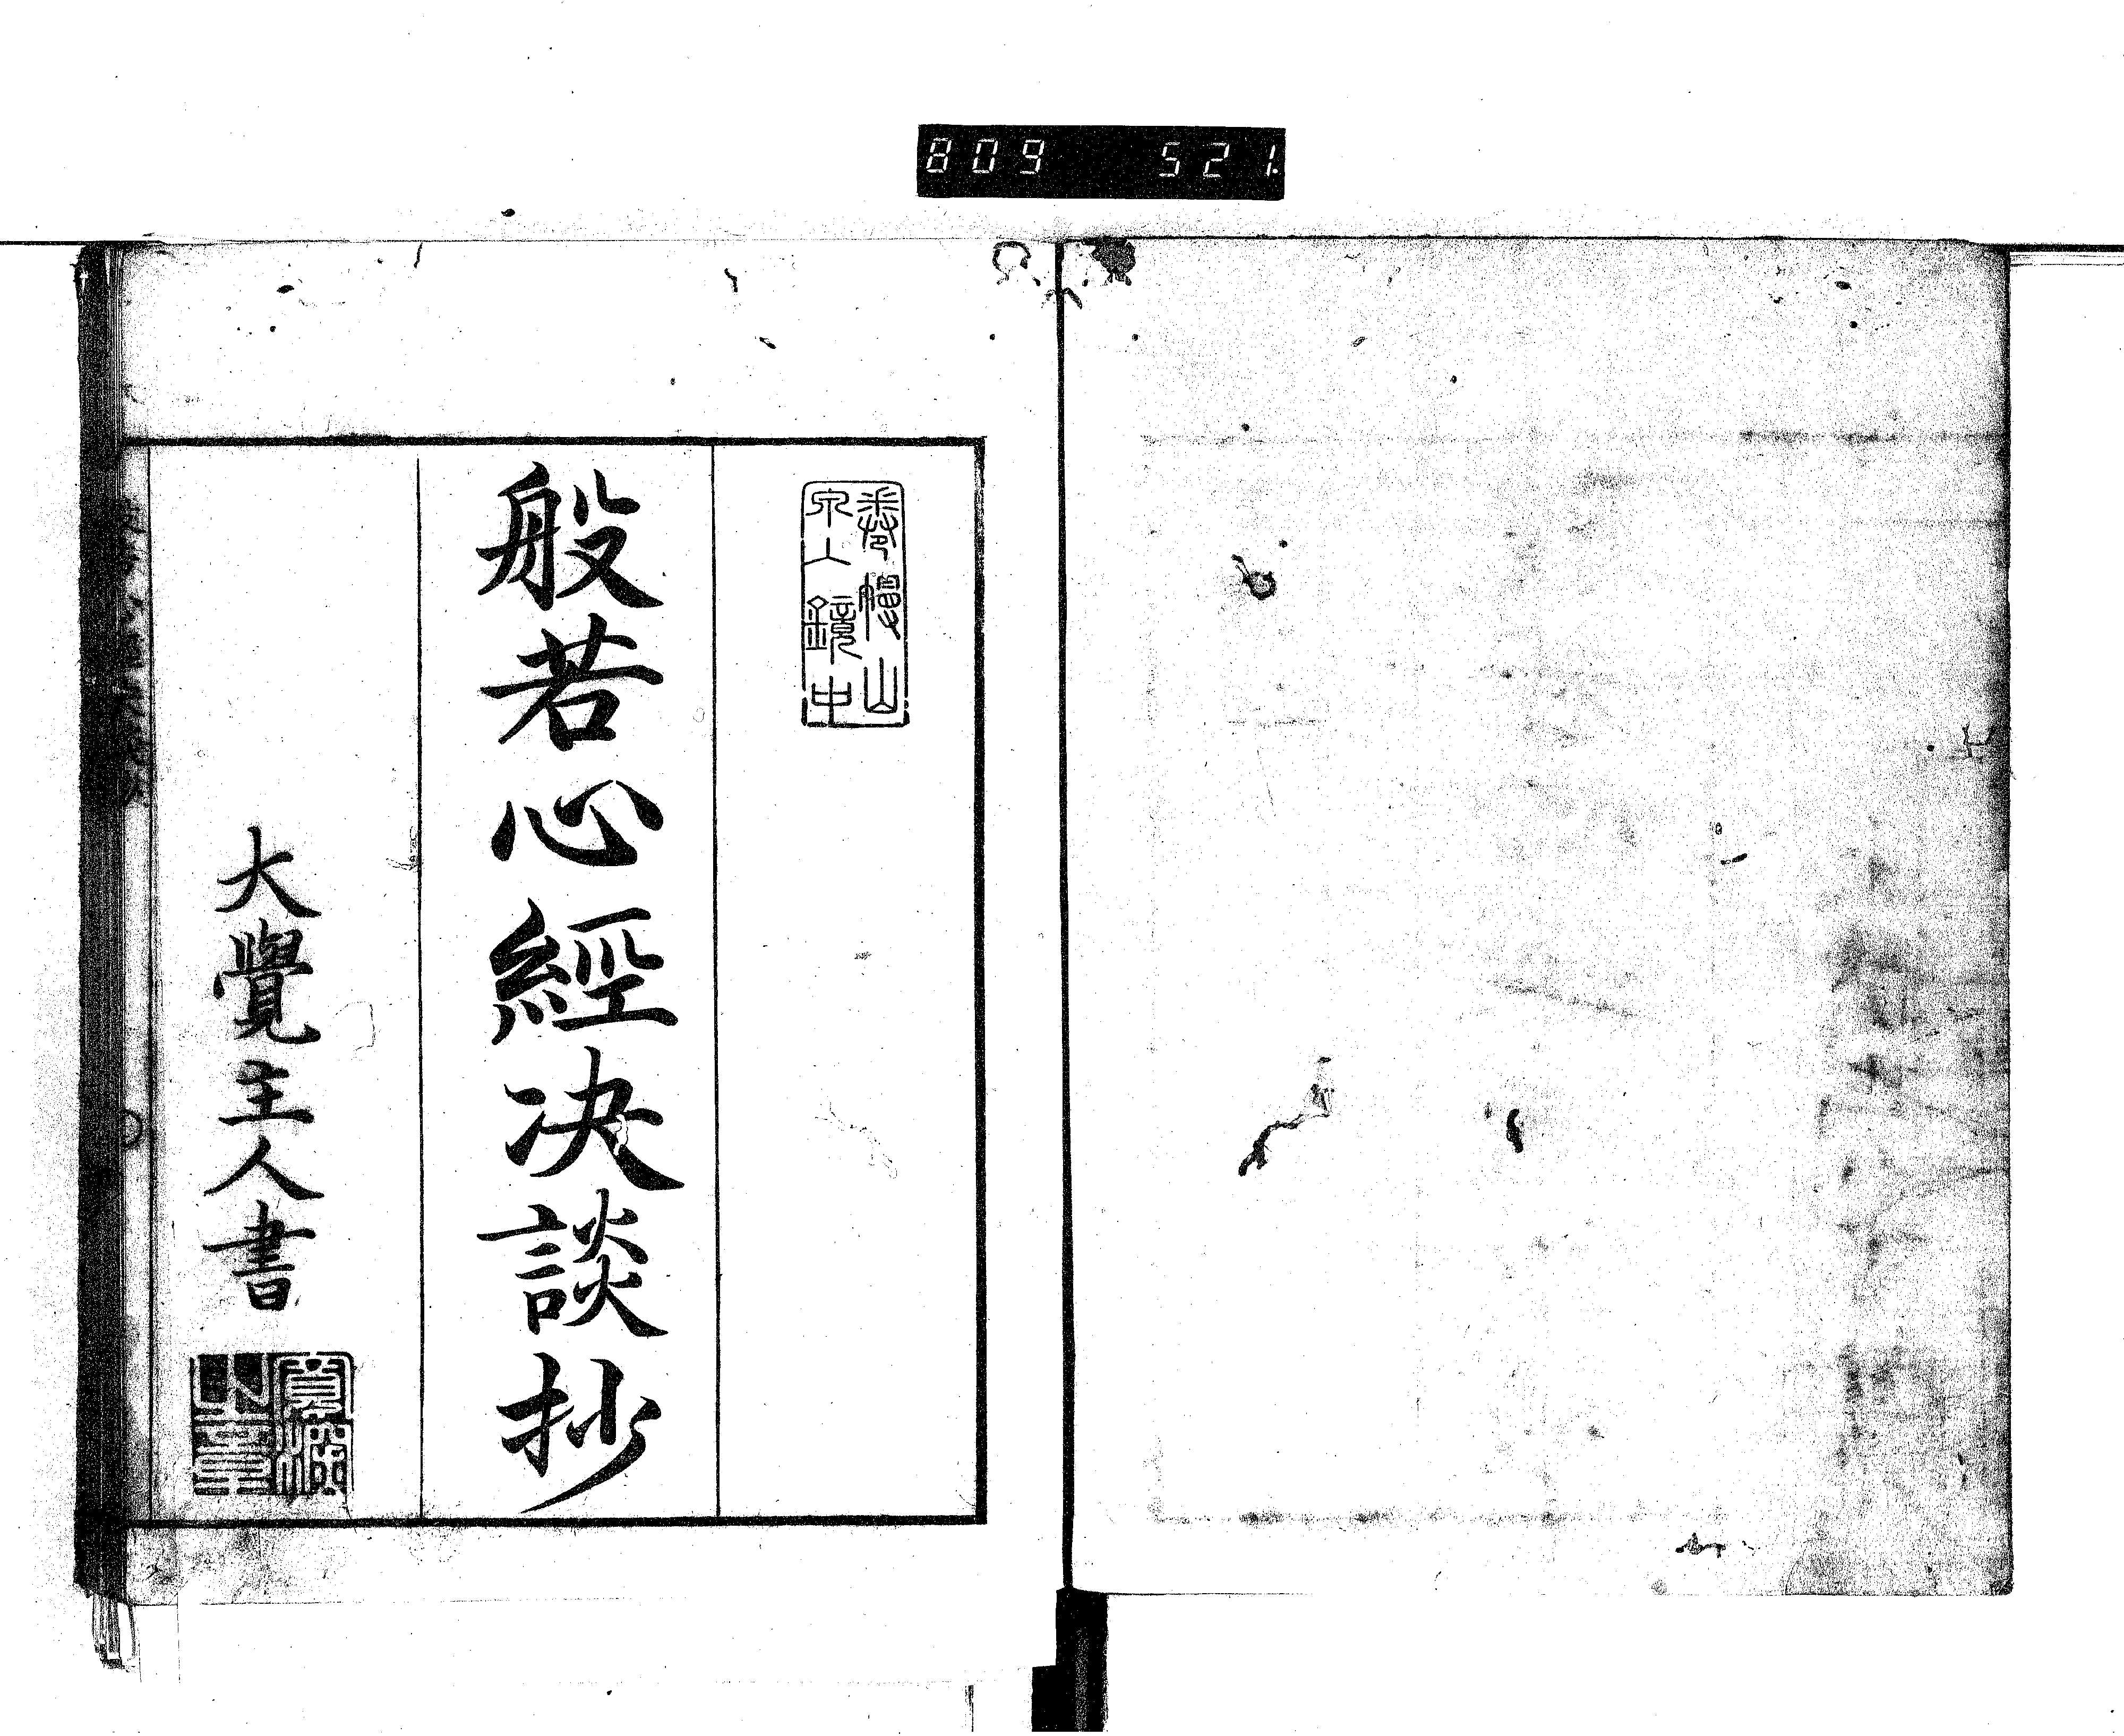 809 521
般若心經決談抄
大覺主人書